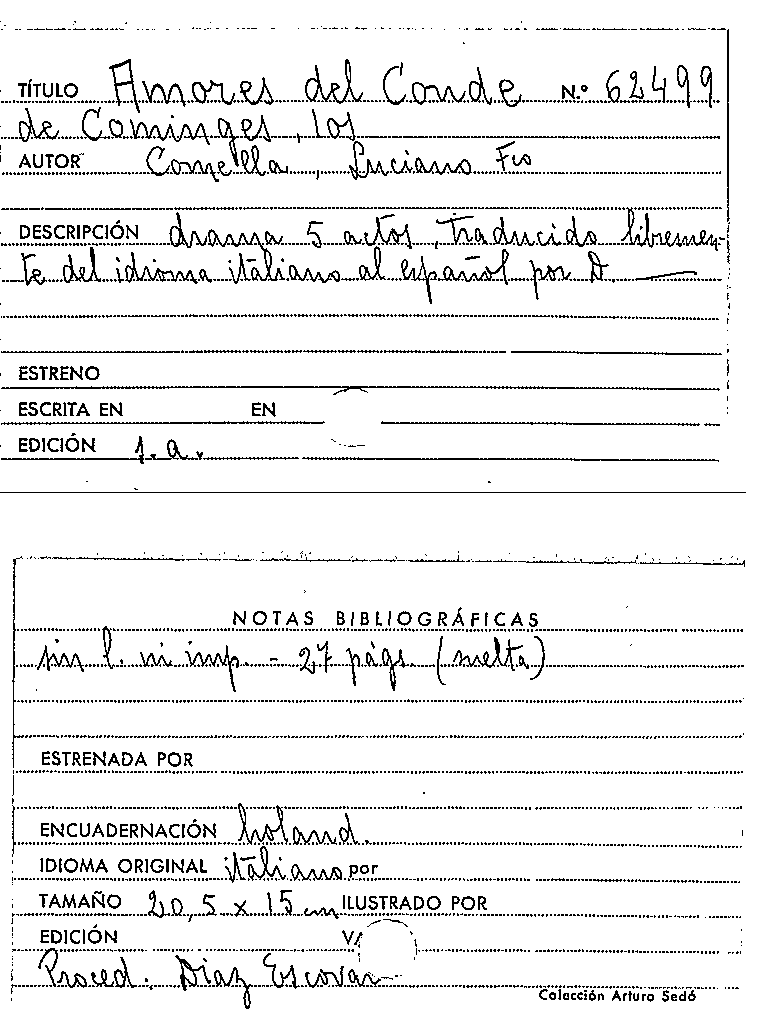 TÍTULO Amores del Conde N.º 62499
de Cominges, los
AUTOR Comella, Luciano Fco
DESCRIPCIÓN drama 5 actos, traducido libremen-
te del idioma italiano al español por D. ———
ESTRENO
ESCRITA EN EN
EDICIÓN s.a.
NOTAS BIBLIOGRÁFICAS
sin l. ni imp. - 27 págs. (suelta)
ESTRENADA POR
ENCUADERNACIÓN holand.
IDIOMA ORIGINAL italiano por
TAMAÑO 20,5 x 15 cm ILUSTRADO POR
EDICIÓN
Proced. Diaz Escovar
Colección Arturo Sedó